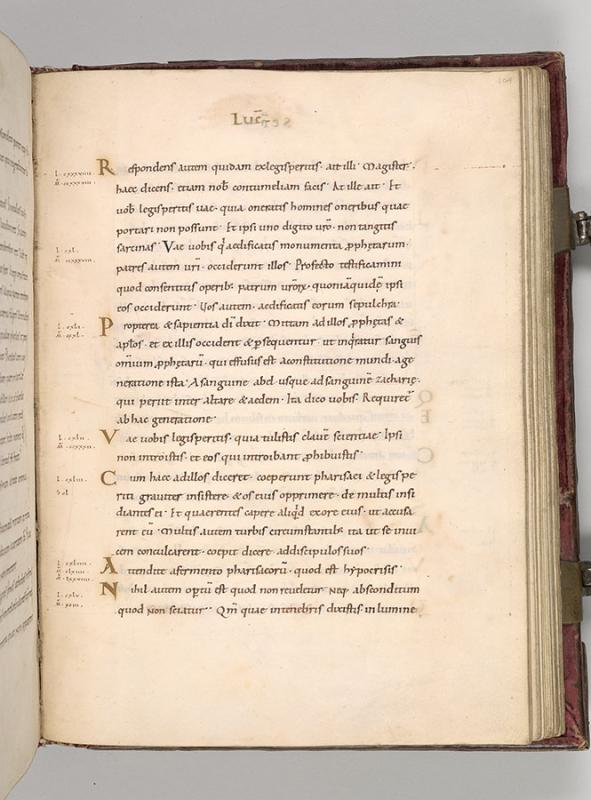 LUC̄
Respondens autem quidam exlegisperitis· ait illi· Magister·
haec dicens· etiam nob̄ contumeliam facis· At ille ait· Et
uob̄ legisperitis uae· quia oneratis homines oneribus quae
portari non possunt· Et ipsi uno digito uro· non tangitis
sarcinas· Vae uobis q̄ aedificatis monumenta prophetarum·
patres autem uri· occiderunt illos· Profecto testificamini
quod consentitis operib; patrum urorum· quoniā quidē ipsi
eos occiderunt· Vos autem· aedificatis eorum sepulchra·
Propterea & sapientia dī dixit· Mittam ad illos prophetas &
aplos· et ex illis occident & persequentur· ut inq̄ratur sanguis
omnium prophetarū· qui effusus est aconstitutione mundi· age
neratione ista· Asanguine abel· usque ad sanguinē zacharię·
qui periit inter altare & aedem· Ita dico uobis· Requiret
ab hac generatione·
Vae uobis legisperitis· quia tulistis clauē scientiae· Ipsi
non introistis· et eos qui introibant prohibuistis·
Cum haec adillos diceret· coeperunt pharisaei & legispe
riti grauiter insistere· & os eius opprimere· de multis insi
diantes ei· Et quaerentes capere aliqd exore eius· ut accusa
rent eū· Multis autem turbis circumstantib; ita ut se inui
cem conculcarent· coepit dicere· addiscipulos suos·
Attendite afermento pharisaeorū· quod est hypocrisis·
Nihil autem optū est quod non reueletur· Neq; absconditum
quod non sciatur· Qm̄ quae intenebris dixistis in lumine